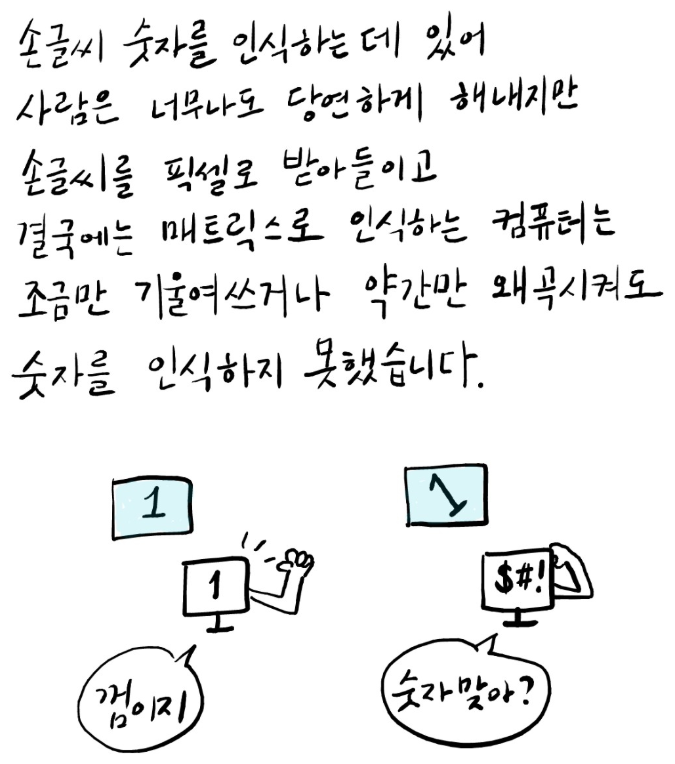 손글씨 숫자를 인식하는데 있어
사람은 너무나도 당연하게 해내지만
손글씨를 픽셀로 받아들이고
결국에는 매트릭스로 인식하는 컴퓨터는
조금만 기울여쓰거나 약간만 왜곡시켜도
숫자를 인식하지 못했습니다.
1
1
1
$#!
껌이지
숫자맞아?